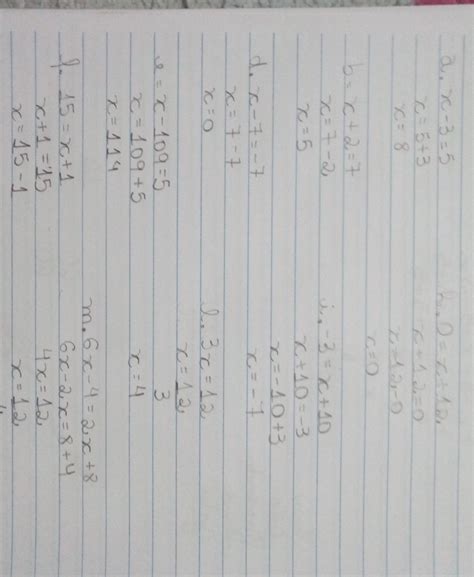 a. x-3=5
x=5+3
x=8
b= x+2=7
x=7-2
x=5
d. x-7=-7
x=7-7
x=0
e= x-109=5
x=109+5
x=114
f. 15=x+1
x+1=15
x=15-1
h. 0=x+12
x+12=0
x=12-0
x=0
i. -3=x+10
x+10=-3
x=-10+3
x=-7
l. 3x=12
x=12
3
x=4
m. 6x-4=2x+8
6x-2x=8+4
4x=12
x=12